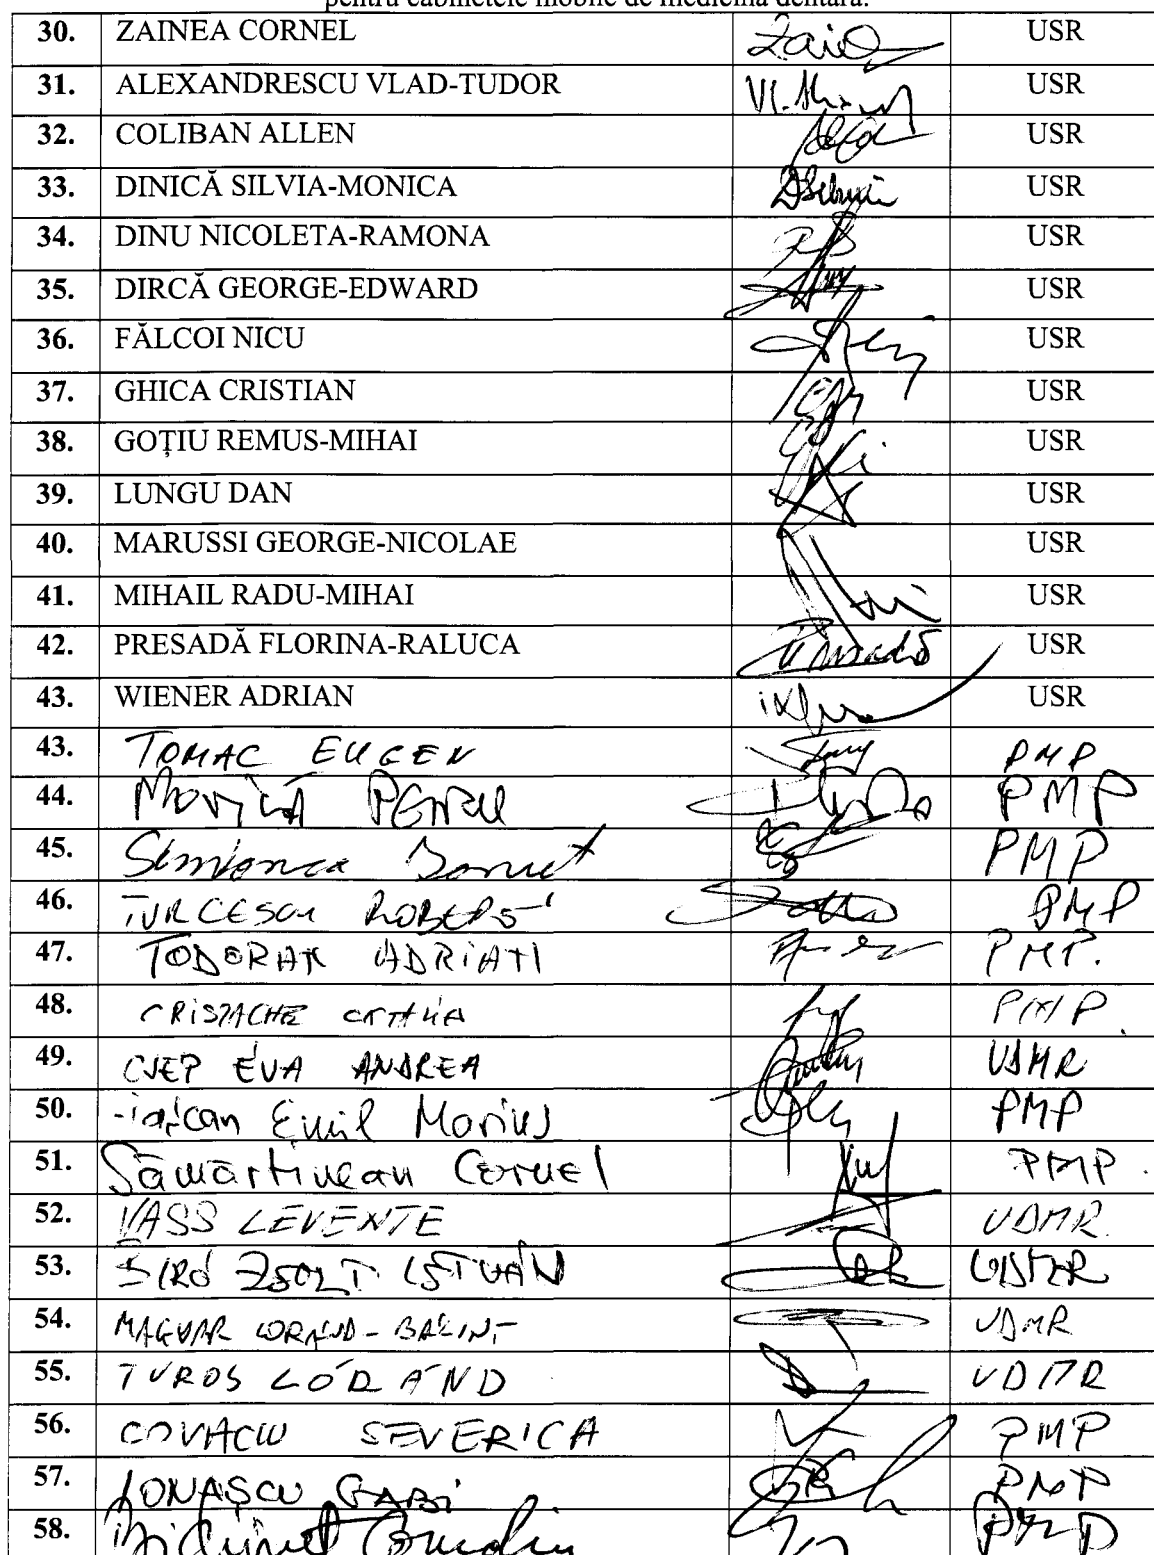 pentru cabinetele mobile de medicină dentară.
30. ZAINEA CORNEL USR
31. ALEXANDRESCU VLAD-TUDOR USR
32. COLIBAN ALLEN USR
33. DINICĂ SILVIA-MONICA USR
34. DINU NICOLETA-RAMONA USR
35. DIRCĂ GEORGE-EDWARD USR
36. FĂLCOI NICU USR
37. GHICA CRISTIAN USR
38. GOȚIU REMUS-MIHAI USR
39. LUNGU DAN USR
40. MARUSSI GEORGE-NICOLAE USR
41. MIHAIL RADU-MIHAI USR
42. PRESADĂ FLORINA-RALUCA USR
43. WIENER ADRIAN USR
43. TOMAC EUGEN PMP
44. MOVILĂ PETRU PMP
45. Simionca Ionuț PMP
46. TURCESCU ROBERT PMP
47. TODORAN ADRIAN PMP.
48. CRISTACHE PMP
49. CSEP ÉVA ANDREA UDMR
50. Emil Marius PMP
51. Sămărtinean Cornel PMP
52. VASS LEVENTE UDMR
53. BIRÓ ZSOLT ISTVÁN UDMR
54. MAGYAR LORÁND-BÁLINT UDMR
55. TUROS LÓRÁND UDMR
56. COVACIU SEVERICA PMP
57. IONAȘCU GABI PMP
58. PMP